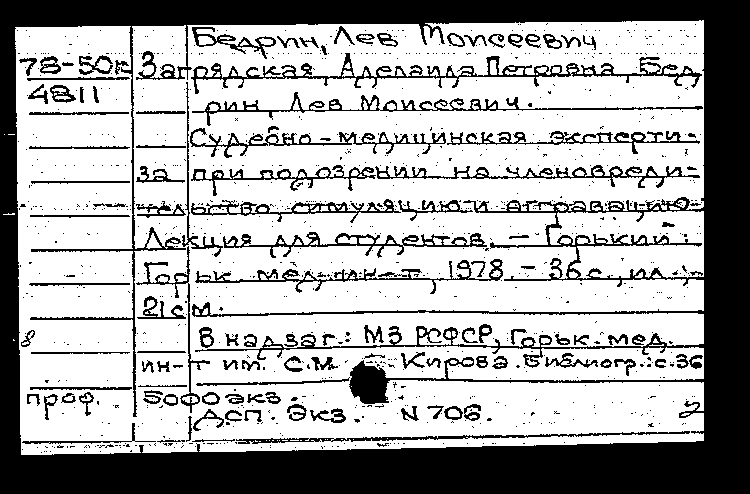 Бедрин, Лев Моисеевич
78-50к Загрядская, Аделаида Петровна, Бед-
4811 рин, Лев Моисеевич.
Судебно-медицинская эксперти-
за при подозрении на членовреди-
тельство, симуляцию и аггравацию:
Лекция для студентов. — Горький:
Горьк. мед. ин-т, 1978. — 36 с., ил.;
21 см.
8 В надзаг.: МЗ РСФСР, Горьк. мед.
ин-т им. С.М. Кирова. Библиогр.: с. 36
проф. 5000 экз.
ДСП. Экз. N 706.